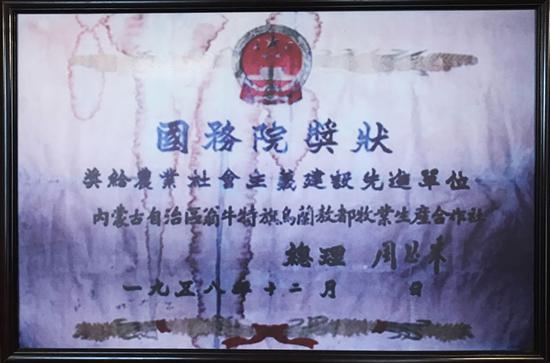 国務院獎狀
奬給農業社會主義建設先進單位
內蒙古自治區翁牛特旗烏蘭敖都牧業生産合作社
總理 周恩来
一九五八年十二月 日